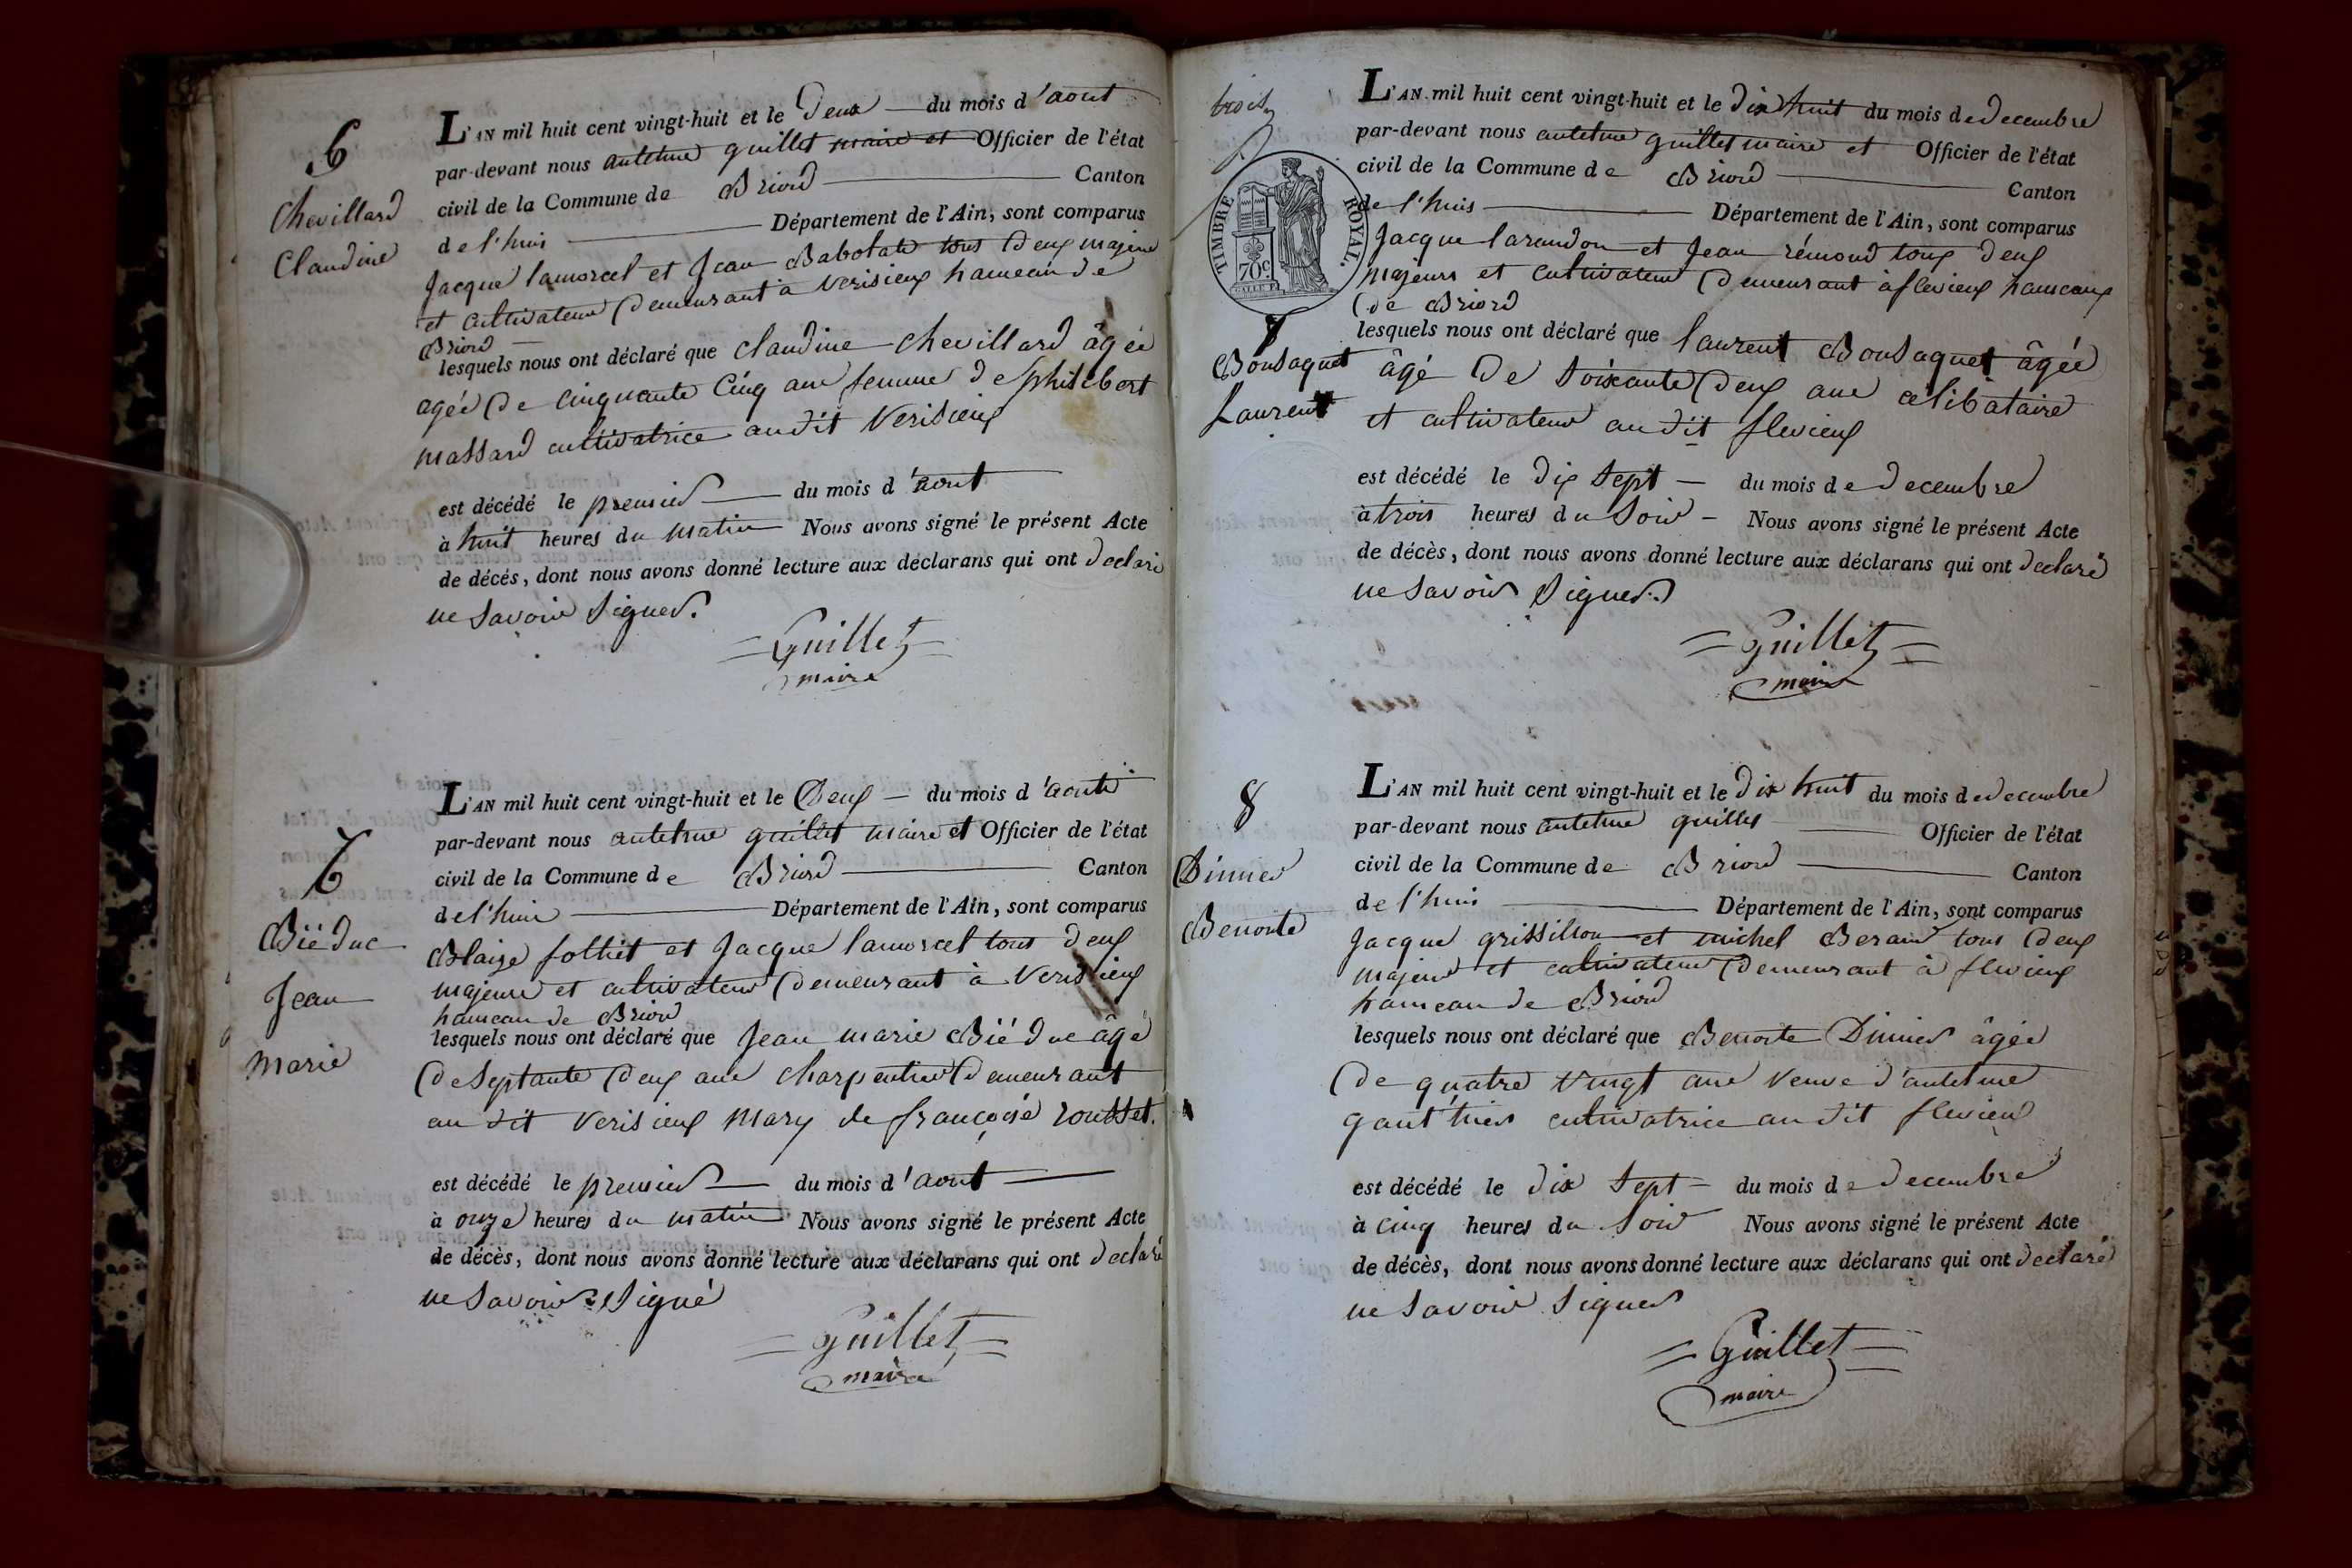 6
Chevillard
Claudine
L'AN mil huit cent vingt-huit et le Deux du mois d'aout
par-devant nous antelme guillet maire et Officier de l'état
civil de la Commune de Briord Canton
de l'huis Département de l'Ain, sont comparus
Jacque lamorcel et Jean Babolat tous deux majeur
et cultivateur demeurant à verisieux hameau de
Briord
lesquels nous ont déclaré que claudine chevillard âgée
agée de cinquante cinq ans femme de philibert
massard cultivatrice au dit verisieux
est décédé le premier du mois d'aout
à huit heures du matin Nous avons signé le présent Acte
de décés, dont nous avons donné lecture aux déclarans qui ont declaré
ne savoir signer.
Guillet
maire
7
Biéduc
Jean
marie
L'AN mil huit cent vingt-huit et le Deux du mois d'aout
par-devant nous antelme guillet maire et Officier de l'état
civil de la Commune de Briord Canton
de l'huis Département de l'Ain, sont comparus
Blaize follit et Jacque lamorcel tous deux
majeure et cultivateur demeurant à verisieux
hameau de Briord
lesquels nous ont déclaré que Jean marie Biéduc âgé
de septante deux ans charpentier demeurant
au dit verisieux mary de françoise rousset.
est décédé le premier du mois d'aout
à onze heures du matin Nous avons signé le présent Acte
de décès, dont nous avons donné lecture aux déclarans qui ont declaré
ne savoir signé
Guillet
maire
trois
TIMBRE ROYAL.
70c.
L'AN mil huit cent vingt-huit et le dix huit du mois de decembre
par-devant nous antelme guillet maire et Officier de l'état
civil de la Commune de Briord Canton
de l'huis Département de l'Ain, sont comparus
Jacque larandon et Jean rémond tous deux
majeurs et cultivateur demeurant à flevieux hameaux
de Briord
7
Bonsaquet
Laurent
lesquels nous ont déclaré que laurent Bonsaquet âgée
âgé de soixante deux ans célibataire
et cultivateur au dit flevieux
est décédé le dix sept du mois de decembre
à trois heures du soir Nous avons signé le présent Acte
de décès, dont nous avons donné lecture aux déclarans qui ont declaré
ne savoir signer.
Guillet
maire
8
Dinnier
Benoite
L'AN mil huit cent vingt-huit et le dix huit du mois de decembre
par-devant nous antelme guillet Officier de l'état
civil de la Commune de Briord Canton
de l'huis Département de l'Ain, sont comparus
Jacque grissillon et michel Beraud tous deux
majeur et cultivateur demeurant à flevieux
hameau de Briord
lesquels nous ont déclaré que Benoite Dinnier âgée
de quatre vingt ans veuve d'antelme
gauthier cultivatrice au dit flevieu
est décédé le dix sept du mois de decembre
à cinq heures du soir Nous avons signé le présent Acte
de décès, dont nous avons donné lecture aux déclarans qui ont declaré
ne savoir signer
Guillet
maire